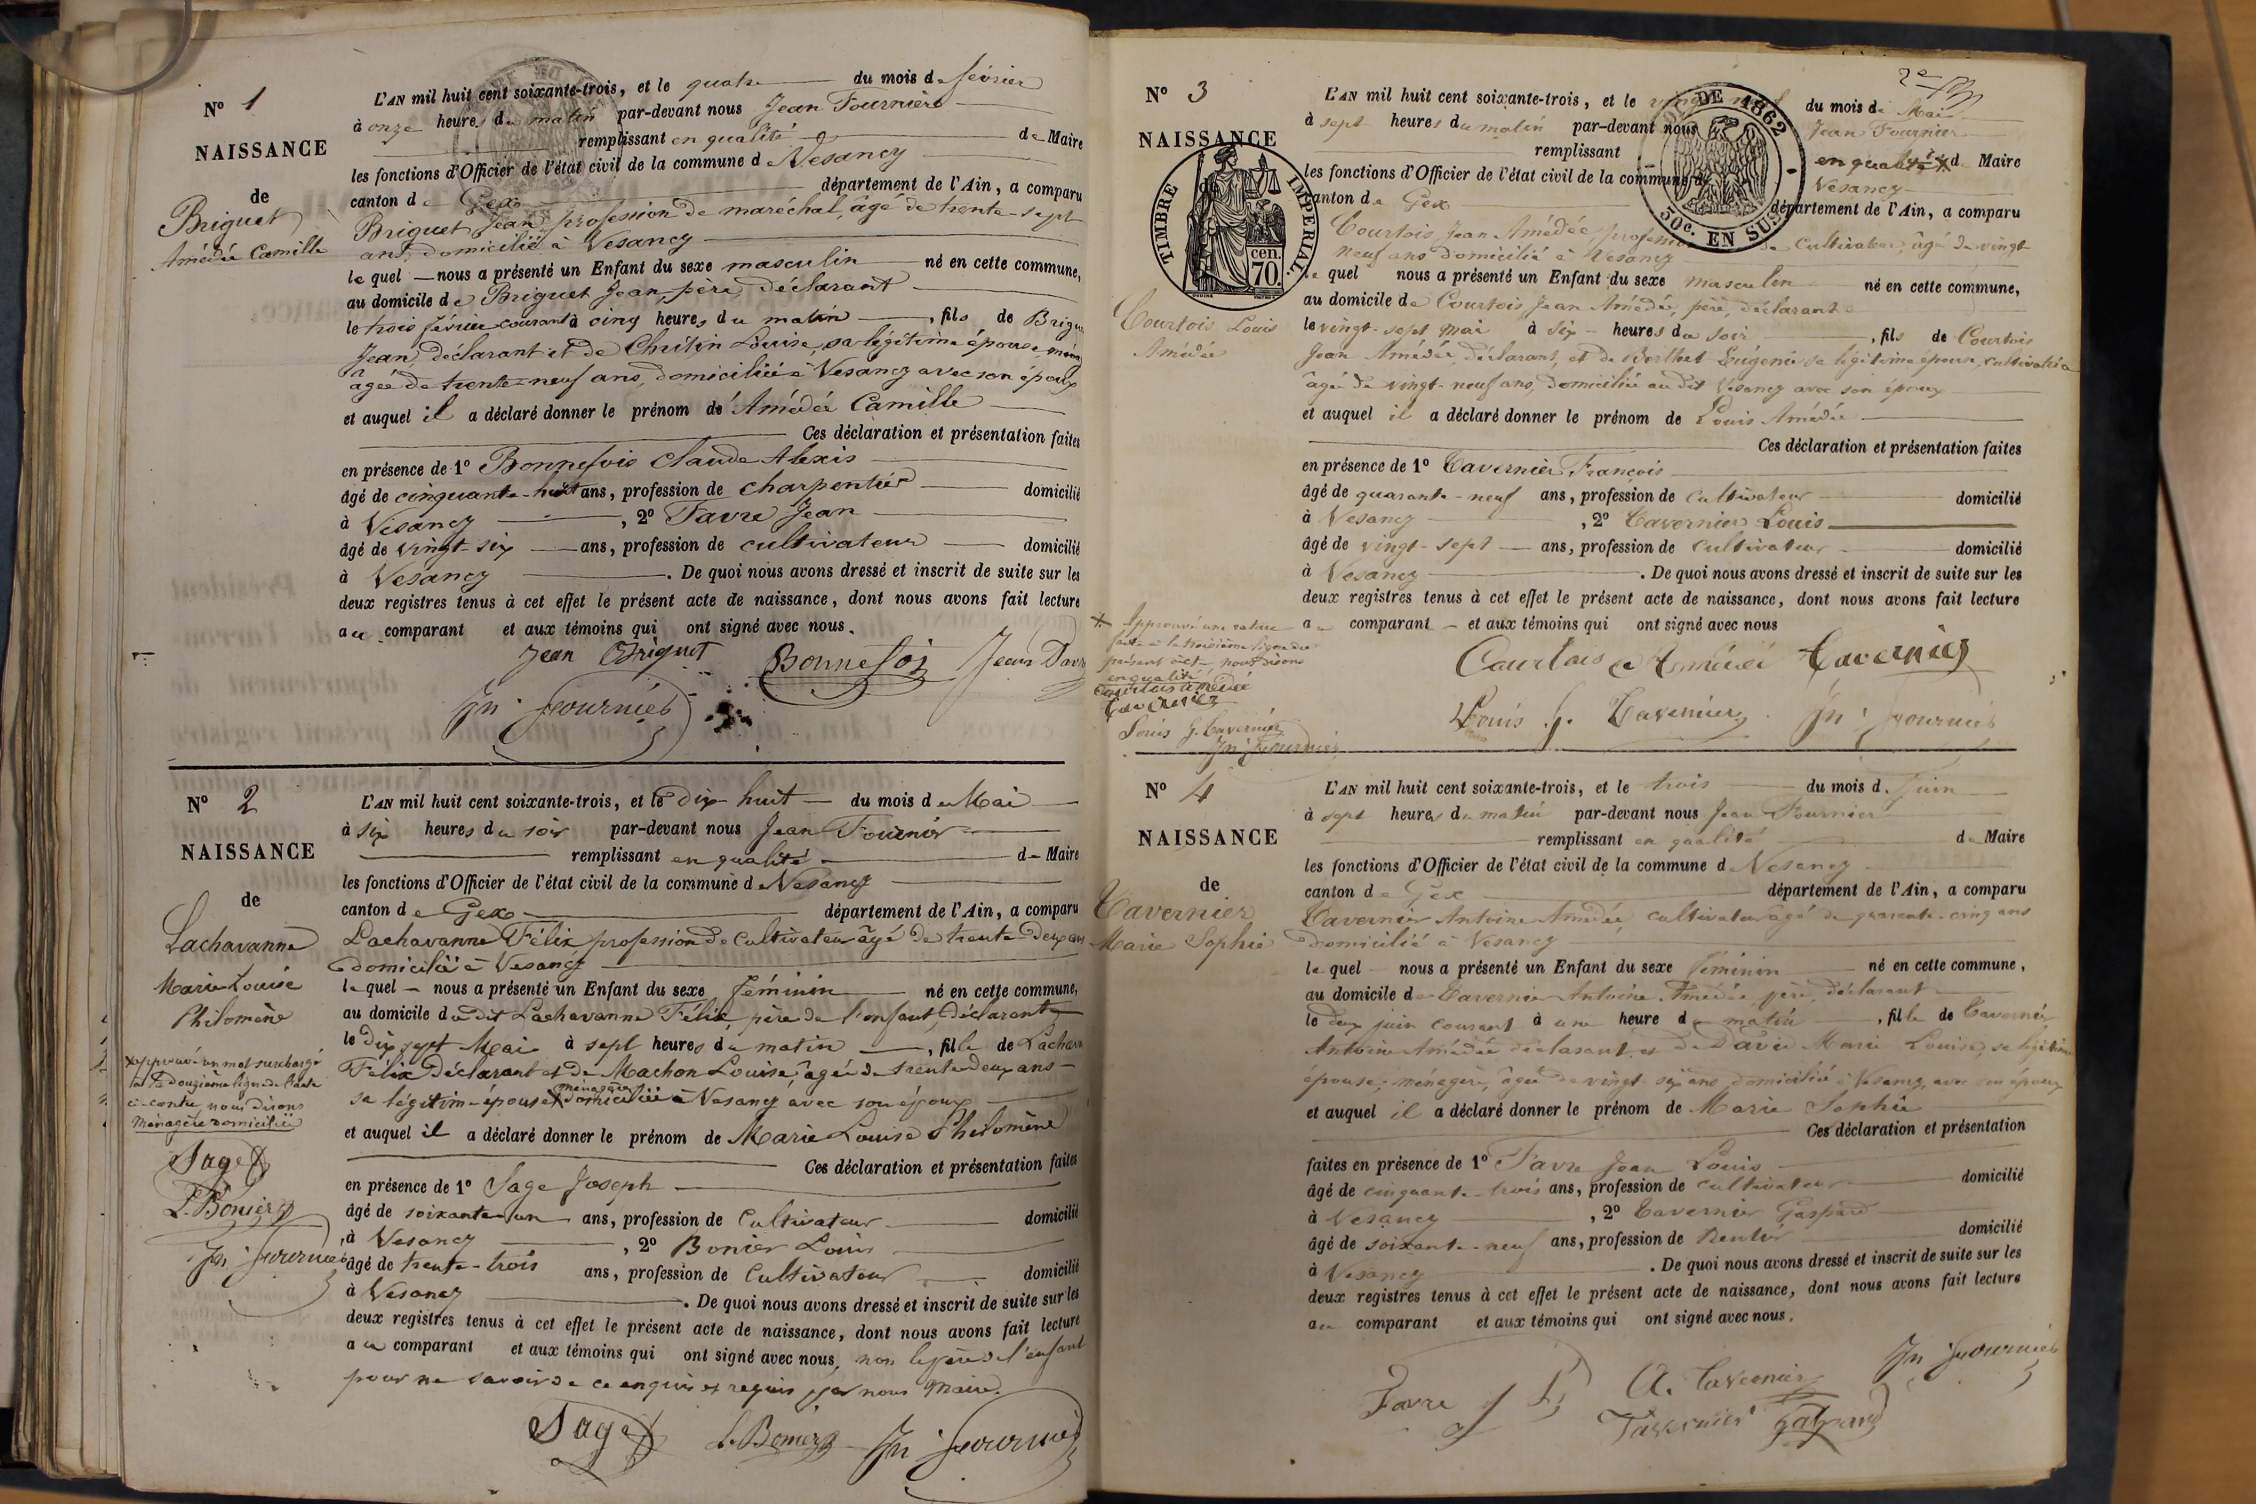 N° 1
NAISSANCE
de
Briguet
Amédée Camille
L'AN mil huit cent soixante-trois, et le quatre du mois de février
à onze heures du matin par-devant nous Jean Fournier
remplissant en qualité de Maire
les fonctions d'Officier de l'état civil de la commune de Vesancy
canton de Gex département de l'Ain, a comparu
Briguet Jean profession de maréchal, âgé de trente-sept
ans, domicilié à Vesancy
lequel nous a présenté un Enfant du sexe masculin né en cette commune,
au domicile de Briguet Jean, père, déclarant
le trois février courant à cinq heures du matin, fils de Brigu
Jean, déclarant et de Chritin Louise, sa légitime épouse
âgée de trente-neuf ans, domiciliée à Vesancy avec son époux
et auquel il a déclaré donner le prénom de Amédée Camille
Ces déclaration et présentation faites
en présence de 1° Bonnefois Claude Alexis
âgé de cinquante-huit ans, profession de charpentier domicilié
à Vesancy, 2° Favre Jean
âgé de vingt-six ans, profession de cultivateur domicilié
à Vesancy. De quoi nous avons dressé et inscrit de suite sur les
deux registres tenus à cet effet le présent acte de naissance, dont nous avons fait lecture
au comparant et aux témoins qui ont signé avec nous.
Jean Briguet Bonnefoi Jean Favr
Jn Fournier
N° 2
NAISSANCE
de
Lachavanne
Marie Louise
Philomène
L'AN mil huit cent soixante-trois, et le dix-huit du mois de Mai
à six heures du soir par-devant nous Jean Fournier
remplissant en qualité de Maire
les fonctions d'Officier de l'état civil de la commune de Vesancy
canton de Gex département de l'Ain, a comparu
Lachavanne Félix profession de cultivateur âgé de trente-deux ans
domicilié à Vesancy
lequel nous a présenté un Enfant du sexe féminin né en cette commune,
au domicile du dit Lachavanne Félix, père de l'enfant, déclarant
le dix sept Mai à sept heures du matin, fille de Lachava
Félix déclarant et de Machon Louise, âgée de trente deux ans
sa légitime épouse ménagère domiciliée à Vesancy avec son époux
et auquel il a déclaré donner le prénom de Marie Louise Philomène
Ces déclaration et présentation faites
en présence de 1° Sage Joseph
âgé de soixante-un ans, profession de Cultivateur domicilié
à Vesancy, 2° Bonier Louis
âgé de trente-trois ans, profession de Cultivateur domicilié
à Vesancy. De quoi nous avons dressé et inscrit de suite sur les
deux registres tenus à cet effet le présent acte de naissance, dont nous avons fait lecture
au comparant et aux témoins qui ont signé avec nous, non le père de l'enfant
pour ne savoir de ce enquis et requis par nous Maire.
x approuvé un mot surchargé
à la douzième ligne de l'acte
ci-contre, nous disons
Ménagère domiciliée
Sage
L. Bonier
Jn Fournier
Sage L. Bonier Jn Fournier
N° 3
NAISSANCE
TIMBRE IMPERIAL.
cen. 70.
DE 1862
50c. EN SUS
Courtois Louis
Amédée
L'AN mil huit cent soixante-trois, et le du mois de Mai
à sept heures du matin par-devant nous Jean Fournier
remplissant en qualité de Maire
les fonctions d'Officier de l'état civil de la commune de Vesancy
canton de Gex département de l'Ain, a comparu
Courtois Jean Amédée profession de Cultivateur, âgé de vingt
neuf ans domicilié à Vesancy
lequel nous a présenté un Enfant du sexe masculin né en cette commune,
au domicile de Courtois Jean Amédée, père, déclarant
le vingt-sept mai à six heures du soir, fils de Courtois
Jean Amédée, déclarant, et de Berthet Eugénie sa légitime épouse, cultivatrice
âgée de vingt-neuf ans, domiciliée au dit Vesancy avec son époux
et auquel il a déclaré donner le prénom de Louis Amédée
Ces déclaration et présentation faites
en présence de 1° Tavernier François
âgé de quarante-neuf ans, profession de Cultivateur domicilié
à Vesancy, 2° Tavernier Louis
âgé de vingt-sept ans, profession de Cultivateur domicilié
à Vesancy. De quoi nous avons dressé et inscrit de suite sur les
deux registres tenus à cet effet le présent acte de naissance, dont nous avons fait lecture
au comparant et aux témoins qui ont signé avec nous
x Approuvé une rature
faite à la troisième ligne du
présent acte, nous disons
en qualité
Courtois amédée
Tavernier
Louis J. Tavernier
Jn Fournier
Courtois Amédée Tavernier
Louis J. Tavernier Jn Fournier
N° 4
NAISSANCE
de
Tavernier
Marie Sophie
L'AN mil huit cent soixante-trois, et le trois du mois de Juin
à sept heures du matin par-devant nous Jean Fournier
remplissant en qualité de Maire
les fonctions d'Officier de l'état civil de la commune de Vesancy
canton de Gex département de l'Ain, a comparu
Tavernier Antoine Amédée, cultivateur âgé de quarante-cinq ans
domicilié à Vesancy
lequel nous a présenté un Enfant du sexe féminin né en cette commune,
au domicile de Tavernier Antoine Amédée, père, déclarant
le deux juin courant à une heure du matin, fille de Tavernier
Antoine Amédée déclarant, et de David Marie Louise, sa légitime
épouse, ménagère, âgée de vingt six ans domiciliée à Vesancy, avec son époux
et auquel il a déclaré donner le prénom de Marie Sophie
Ces déclaration et présentation
faites en présence de 1° Favre Jean Louis
âgé de cinquante-trois ans, profession de cultivateur domicilié
à Vesancy, 2° Tavernier Gaspard
âgé de soixante-neuf ans, profession de Rentier domicilié
à Vesancy. De quoi nous avons dressé et inscrit de suite sur les
deux registres tenus à cet effet le présent acte de naissance, dont nous avons fait lecture
au comparant et aux témoins qui ont signé avec nous.
Jn Fournier
Favre J L A. Tavernier
Tavernier Gaspard